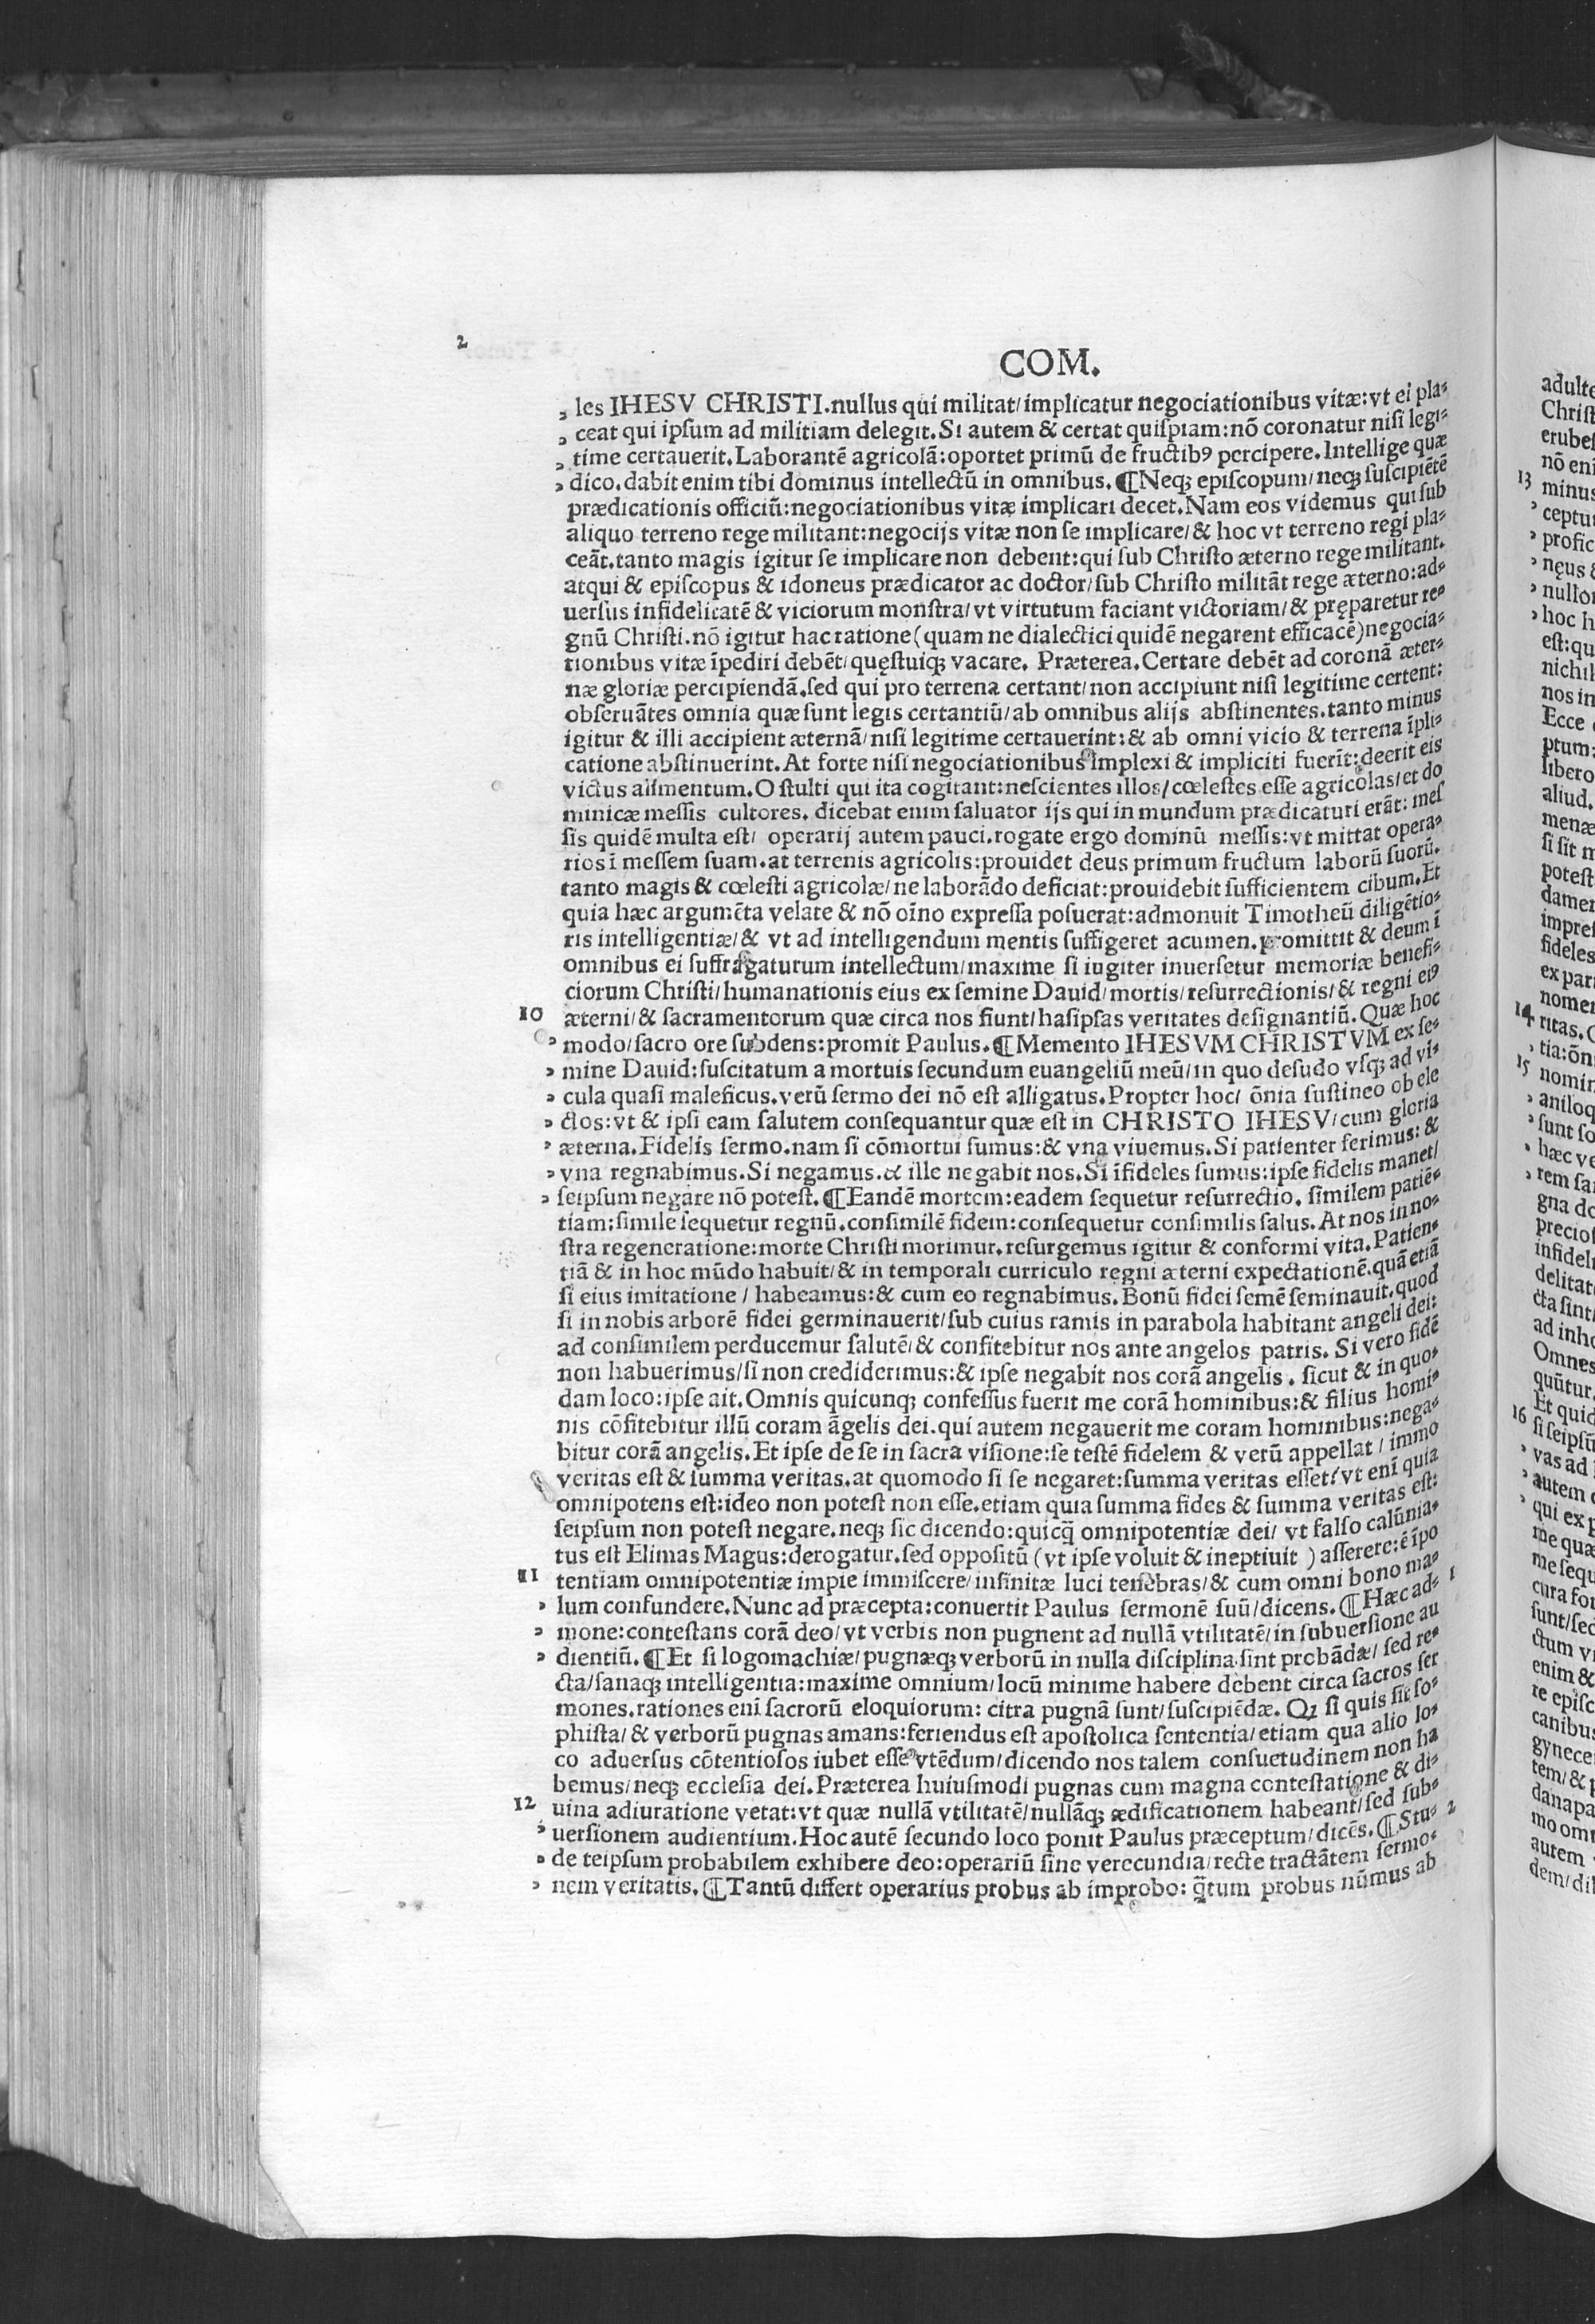 2
COM.
les IHESV CHRISTI.nullus qui militat/implicatur negociationibus vitæ:vt ei pla⸗
ceat qui ipſum ad militiam delegit.Si autem & certat quiſpiam:nõ coronatur niſi legi⸗
time certauerit.Laborantẽ agricolã:oportet primũ de fructibꝰ percipere.Intellige quæ
dico.dabit enim tibi dominus intellectũ in omnibus.¶Neqꝫ epiſcopum/neqꝫ ſuſcipiẽtẽ
prædicationis officiũ:negociationibus vitæ implicari decet.Nam eos videmus qui ſub
aliquo terreno rege militant:negocijs vitæ non ſe implicare/& hoc vt terreno regi pla⸗
ceãt.tanto magis igitur ſe implicare non debent:qui ſub Chriſto æterno rege militant.
atqui & epiſcopus & idoneus prædicator ac doctor/ſub Chriſto militãt rege æterno:ad⸗
uerſus infidelitatẽ & viciorum monſtra/vt virtutum faciant victoriam/& pręparetur re⸗
gnũ Chriſti.nõ igitur hac ratione(quam ne dialectici quidẽ negarent efficacẽ)negocia⸗
tionibus vitæ ĩpediri debẽt/quęſtuiqꝫ vacare. Præterea.Certare debẽt ad coronã æter⸗
næ gloriæ percipiendã.ſed qui pro terrena certant/non accipiunt niſi legitime certent:
obſeruãtes omnia quæ ſunt legis certantiũ/ab omnibus alijs abſtinentes.tanto minus
igitur & illi accipient æternã/niſi legitime certauerint:& ab omni vicio & terrena ĩpli⸗
catione abſtinuerint.At forte niſi negociationibus implexi & impliciti fuerĩt:deerit eis
victus alimentum.O ſtulti qui ita cogitant:neſcientes illos/cœleſtes eſſe agricolas/et do
minicæ meſſis cultores. dicebat enim ſaluator ijs qui in mundum prædicaturi erãt: meſ
ſis quidẽ multa eſt/ operarij autem pauci.rogate ergo dominũ meſſis:vt mittat opera⸗
rios ĩ meſſem ſuam.at terrenis agricolis:prouidet deus primum fructum laborũ ſuorũ.
tanto magis & cœleſti agricolæ/ne laborãdo deficiat:prouidebit ſufficientem cibum.Et
quia hæc argumẽta velate & nõ oĩno expreſſa poſuerat:admonuit Timotheũ diligẽtio⸗
ris intelligentiæ/& vt ad intelligendum mentis ſuffigeret acumen.promittit & deum ĩ
omnibus ei ſuffragaturum intellectum/maxime ſi iugiter inuerſetur memoriæ benefi⸗
ciorum Chriſti/humanationis eius ex ſemine Dauid/mortis/reſurrectionis/& regni eiꝰ
10 æterni/& ſacramentorum quæ circa nos fiunt/haſipſas veritates deſignantiũ.Quæ hoc
modo/ſacro ore ſubdens:promit Paulus.¶Memento IHESVM CHRISTVM ex ſe⸗
mine Dauid:ſuſcitatum a mortuis ſecundum euangeliũ meũ/in quo deſudo vſqꝫ ad vi⸗
cula quaſi maleficus.verũ ſermo dei nõ eſt alligatus.Propter hoc/ õnia ſuſtineo ob ele
ctos:vt & ipſi eam ſalutem conſequantur quæ eſt in CHRISTO IHESV/cum gloria
æterna.Fidelis ſermo.nam ſi cõmortui ſumus:& vna viuemus.Si patienter ferimus: &
vna regnabimus.Si negamus.& ille negabit nos.Si ĩfideles ſumus:ipſe fidelis manet/
ſeipſum negare nõ poteſt.¶Eandẽ mortem:eadem ſequetur reſurrectio. ſimilem patiẽ⸗
tiam:ſimile ſequetur regnũ.conſimilẽ fidem:conſequetur conſimilis ſalus.At nos in no⸗
ſtra regeneratione:morte Chriſti morimur.reſurgemus igitur & conformi vita.Patien⸗
tiã & in hoc mũdo habuit/& in temporali curriculo regni æterni expectationẽ.quã etiã
ſi eius imitatione / habeamus:& cum eo regnabimus.Bonũ fidei ſemẽ ſeminauit.quod
ſi in nobis arborẽ fidei germinauerit/ſub cuius ramis in parabola habitant angeli dei:
ad conſimilem perducemur ſalutẽ/& confitebitur nos ante angelos patris. Si vero fidẽ
non habuerimus/ſi non crediderimus:& ipſe negabit nos corã angelis . ſicut & in quo⸗
dam loco:ipſe ait.Omnis quicunqꝫ confeſſus fuerit me corã hominibus:& filius homi⸗
nis cõfitebitur illũ coram ãgelis dei.qui autem negauerit me coram hominibus:nega⸗
bitur corã angelis.Et ipſe de ſe in ſacra viſione:ſe teſtẽ fidelem & verũ appellat / immo
veritas eſt & ſumma veritas.at quomodo ſi ſe negaret:ſumma veritas eſſet/vt enĩ quia
omnipotens eſt:ideo non poteſt non eſſe.etiam quia ſumma fides & ſumma veritas eſt:
ſeipſum non poteſt negare.neqꝫ ſic dicendo:quicq̃ omnipotentiæ dei/ vt falſo calũnia⸗
tus eſt Elimas Magus:derogatur.ſed oppoſitũ (vt ipſe voluit & ineptiuit ) aſſerere:ẽ ĩpo
11 tentiam omnipotentiæ impie immiſcere/infinitæ luci tenebras/& cum omni bono ma⸗
lum confundere.Nunc ad præcepta:conuertit Paulus ſermonẽ ſuũ/dicens.¶Hæc ad⸗ 1
mone:conteſtans corã deo/vt verbis non pugnent ad nullã vtilitatẽ/in ſubuerſione au
dientiũ.¶Et ſi logomachiæ/pugnæqꝫ verborũ in nulla diſciplina ſint probãdæ/ ſed re⸗
cta/ſanaqꝫ intelligentia:maxime omnium/locũ minime habere debent circa ſacros ſer
mones.rationes enĩ ſacrorũ eloquiorum: citra pugnã ſunt/ſuſcipiẽdæ. Qꝫ ſi quis ſit ſo⸗
phiſta/& verborũ pugnas amans:feriendus eſt apoſtolica ſententia/etiam qua alio lo⸗
co aduerſus cõtentioſos iubet eſſe vtẽdum/dicendo nos talem conſuetudinem non ha
bemus/neqꝫ eccleſia dei.Præterea huiuſmodi pugnas cum magna conteſtatione & di⸗
12 uina adiuratione vetat:vt quæ nullã vtilitatẽ/nullãqꝫ ædificationem habeant/ſed ſub⸗
uerſionem audientium.Hoc autẽ ſecundo loco ponit Paulus præceptum/dicẽs.¶Stu⸗ 2
de teipſum probabilem exhibere deo:operariũ ſine verecundia/recte tractãtem ſermo⸗
nem veritatis.¶Tantũ differt operarius probus ab improbo: q̃tum probus nũmus ab